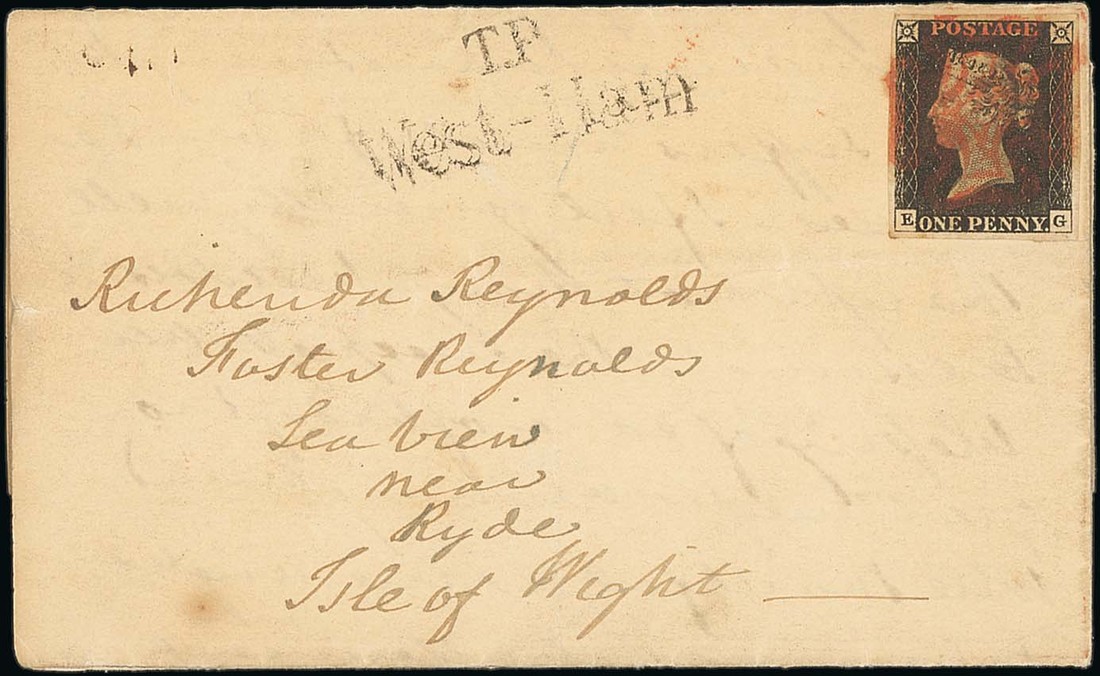 T.P
West-Ham
POSTAGE
E ONE PENNY. G
Richenda Reynolds
Foster Reynolds
Sea View
near
Ryde
Isle of Wight